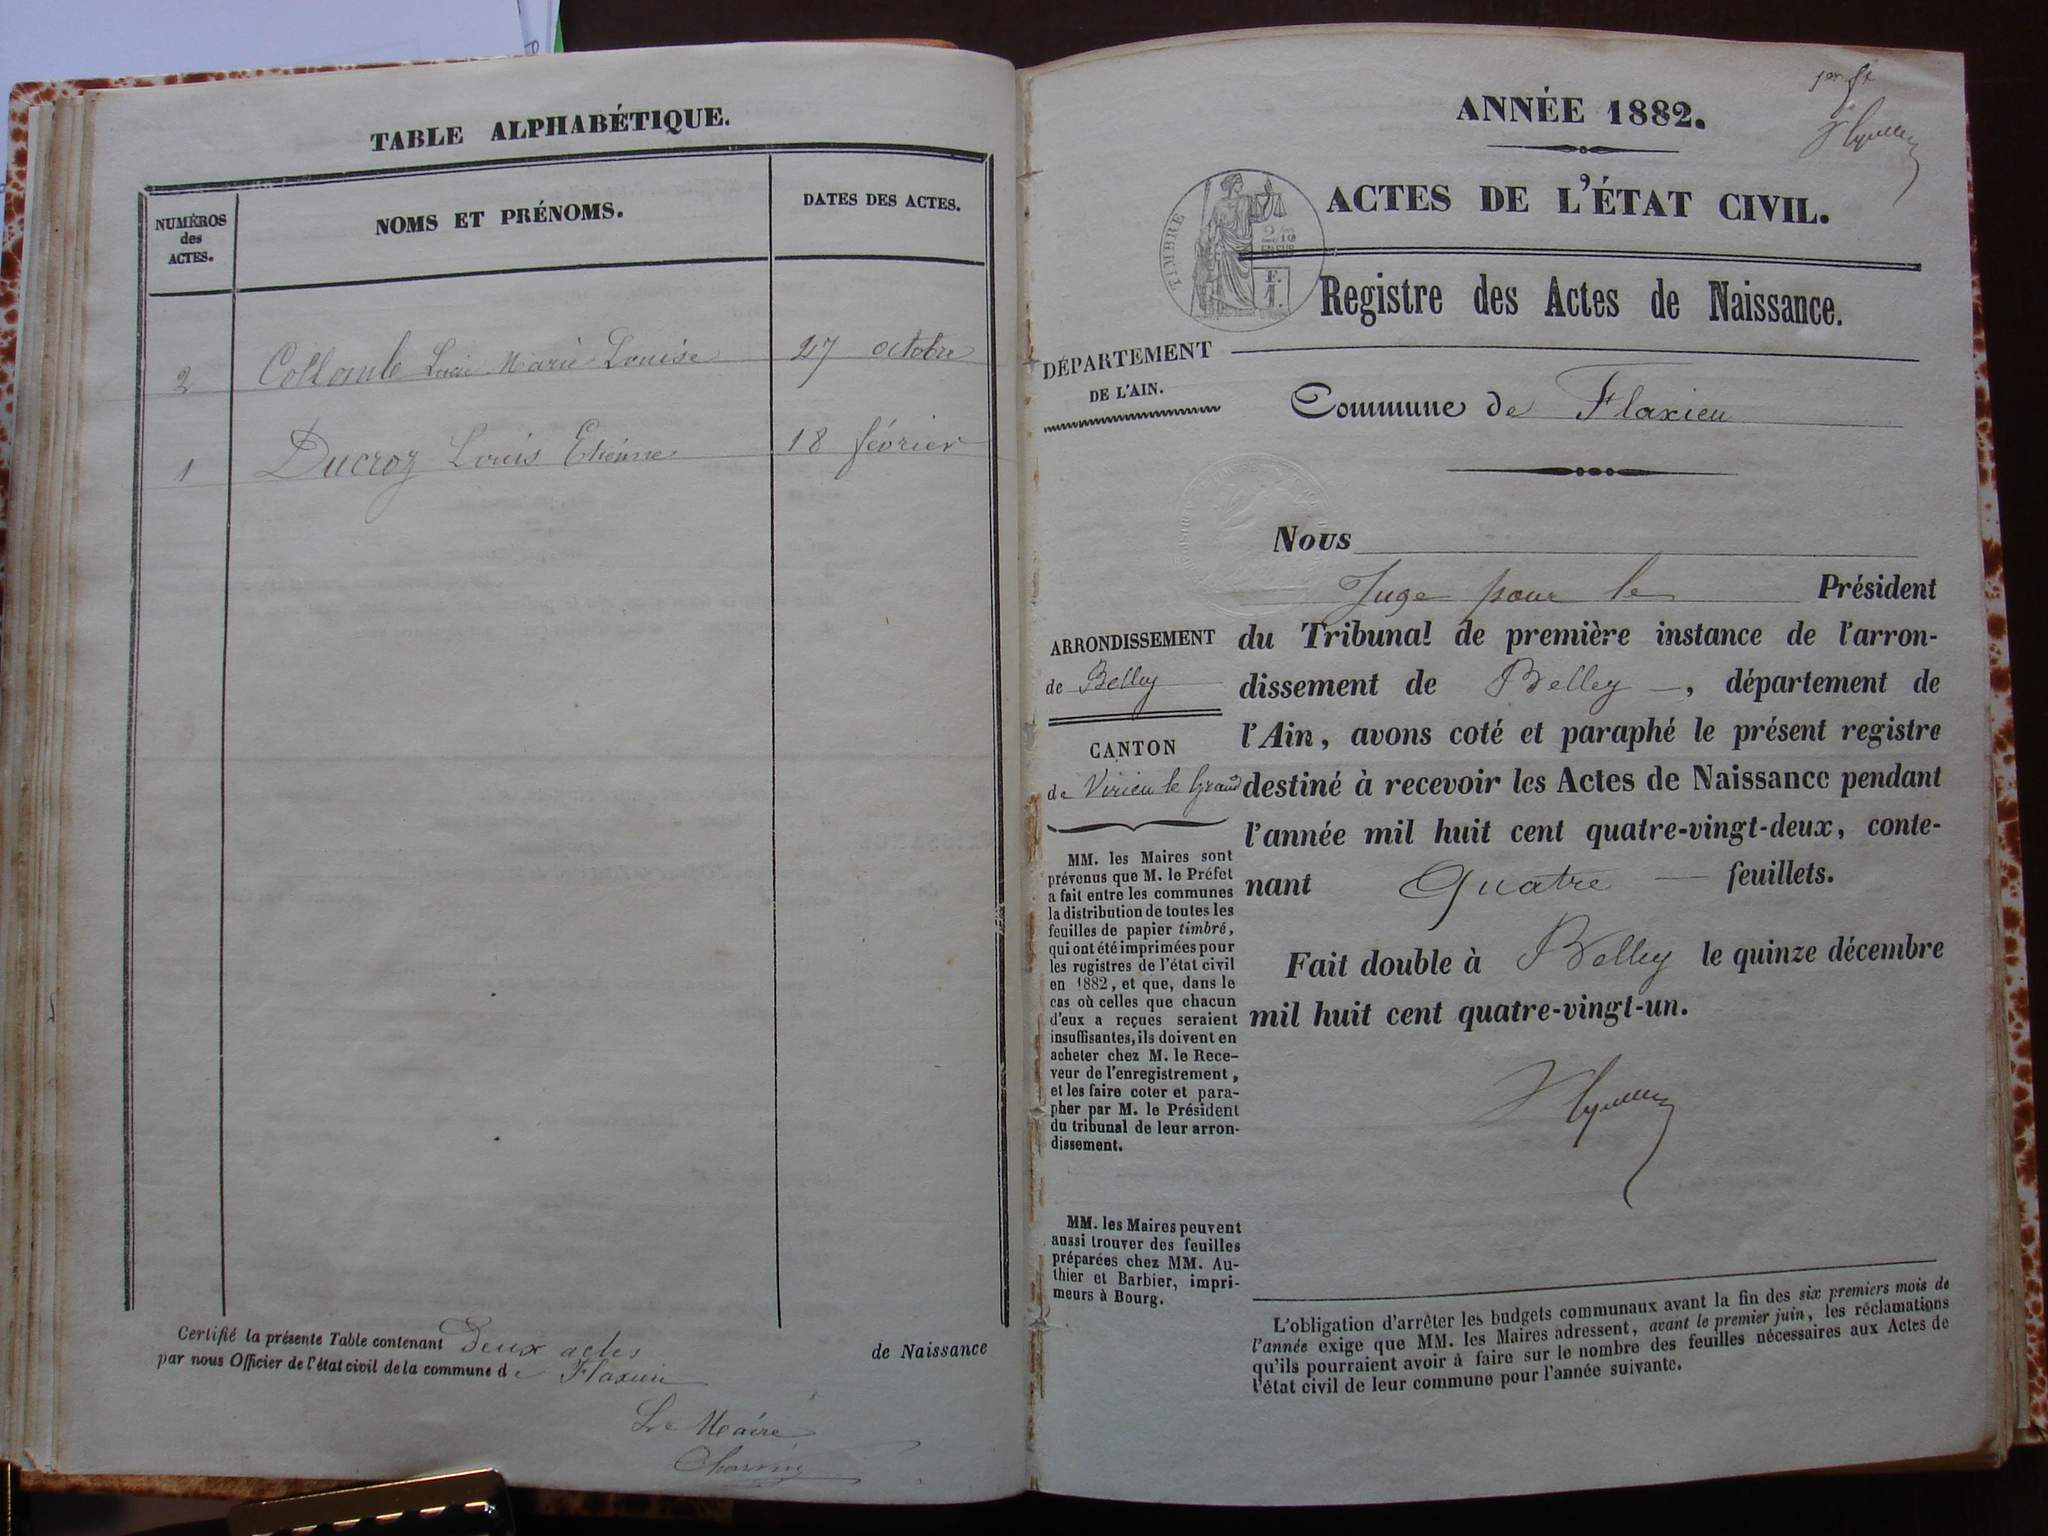 TABLE ALPHABÉTIQUE.
NUMÉROS
des
ACTES.
NOMS ET PRÉNOMS.
DATES DES ACTES.
2 Collomb Marie Louise 27 octobre
1 Ducroz Louis Etienne 18 février
Certifié la présente Table contenant Deux actes de Naissance
par nous Officier de l'état civil de la commune de Flaxieu
Le Maire
ANNÉE 1882.
ACTES DE L'ÉTAT CIVIL.
TIMBRE
2/10
EN SUS
F.
1.
Registre des Actes de Naissance.
DÉPARTEMENT
DE L'AIN.
Commune de Flaxieu
Nous
Juge pour le Président
du Tribunal de première instance de l'arron-
dissement de Belley —, département de
l'Ain, avons coté et paraphé le présent registre
destiné à recevoir les Actes de Naissance pendant
l'année mil huit cent quatre-vingt-deux, conte-
nant Quatre — feuillets.
Fait double à Belley le quinze décembre
mil huit cent quatre-vingt-un.
ARRONDISSEMENT
de Belley
CANTON
de Virieu le Grand
MM. les Maires sont
prévenus que M. le Préfet
a fait entre les communes
la distribution de toutes les
feuilles de papier timbré,
qui ont été imprimées pour
les registres de l'état civil
en 1882, et que, dans le
cas où celles que chacun
d'eux a reçues seraient
insuffisantes, ils doivent en
acheter chez M. le Rece-
veur de l'enregistrement,
et les faire coter et para-
pher par M. le Président
du tribunal de leur arron-
dissement.
MM. les Maires peuvent
aussi trouver des feuilles
préparées chez MM. Au-
thier et Barbier, impri-
meurs à Bourg.
L'obligation d'arrêter les budgets communaux avant la fin des six premiers mois de
l'année exige que MM. les Maires adressent, avant le premier juin, les réclamations
qu'ils pourraient avoir à faire sur le nombre des feuilles nécessaires aux Actes de
l'état civil de leur commune pour l'année suivante.